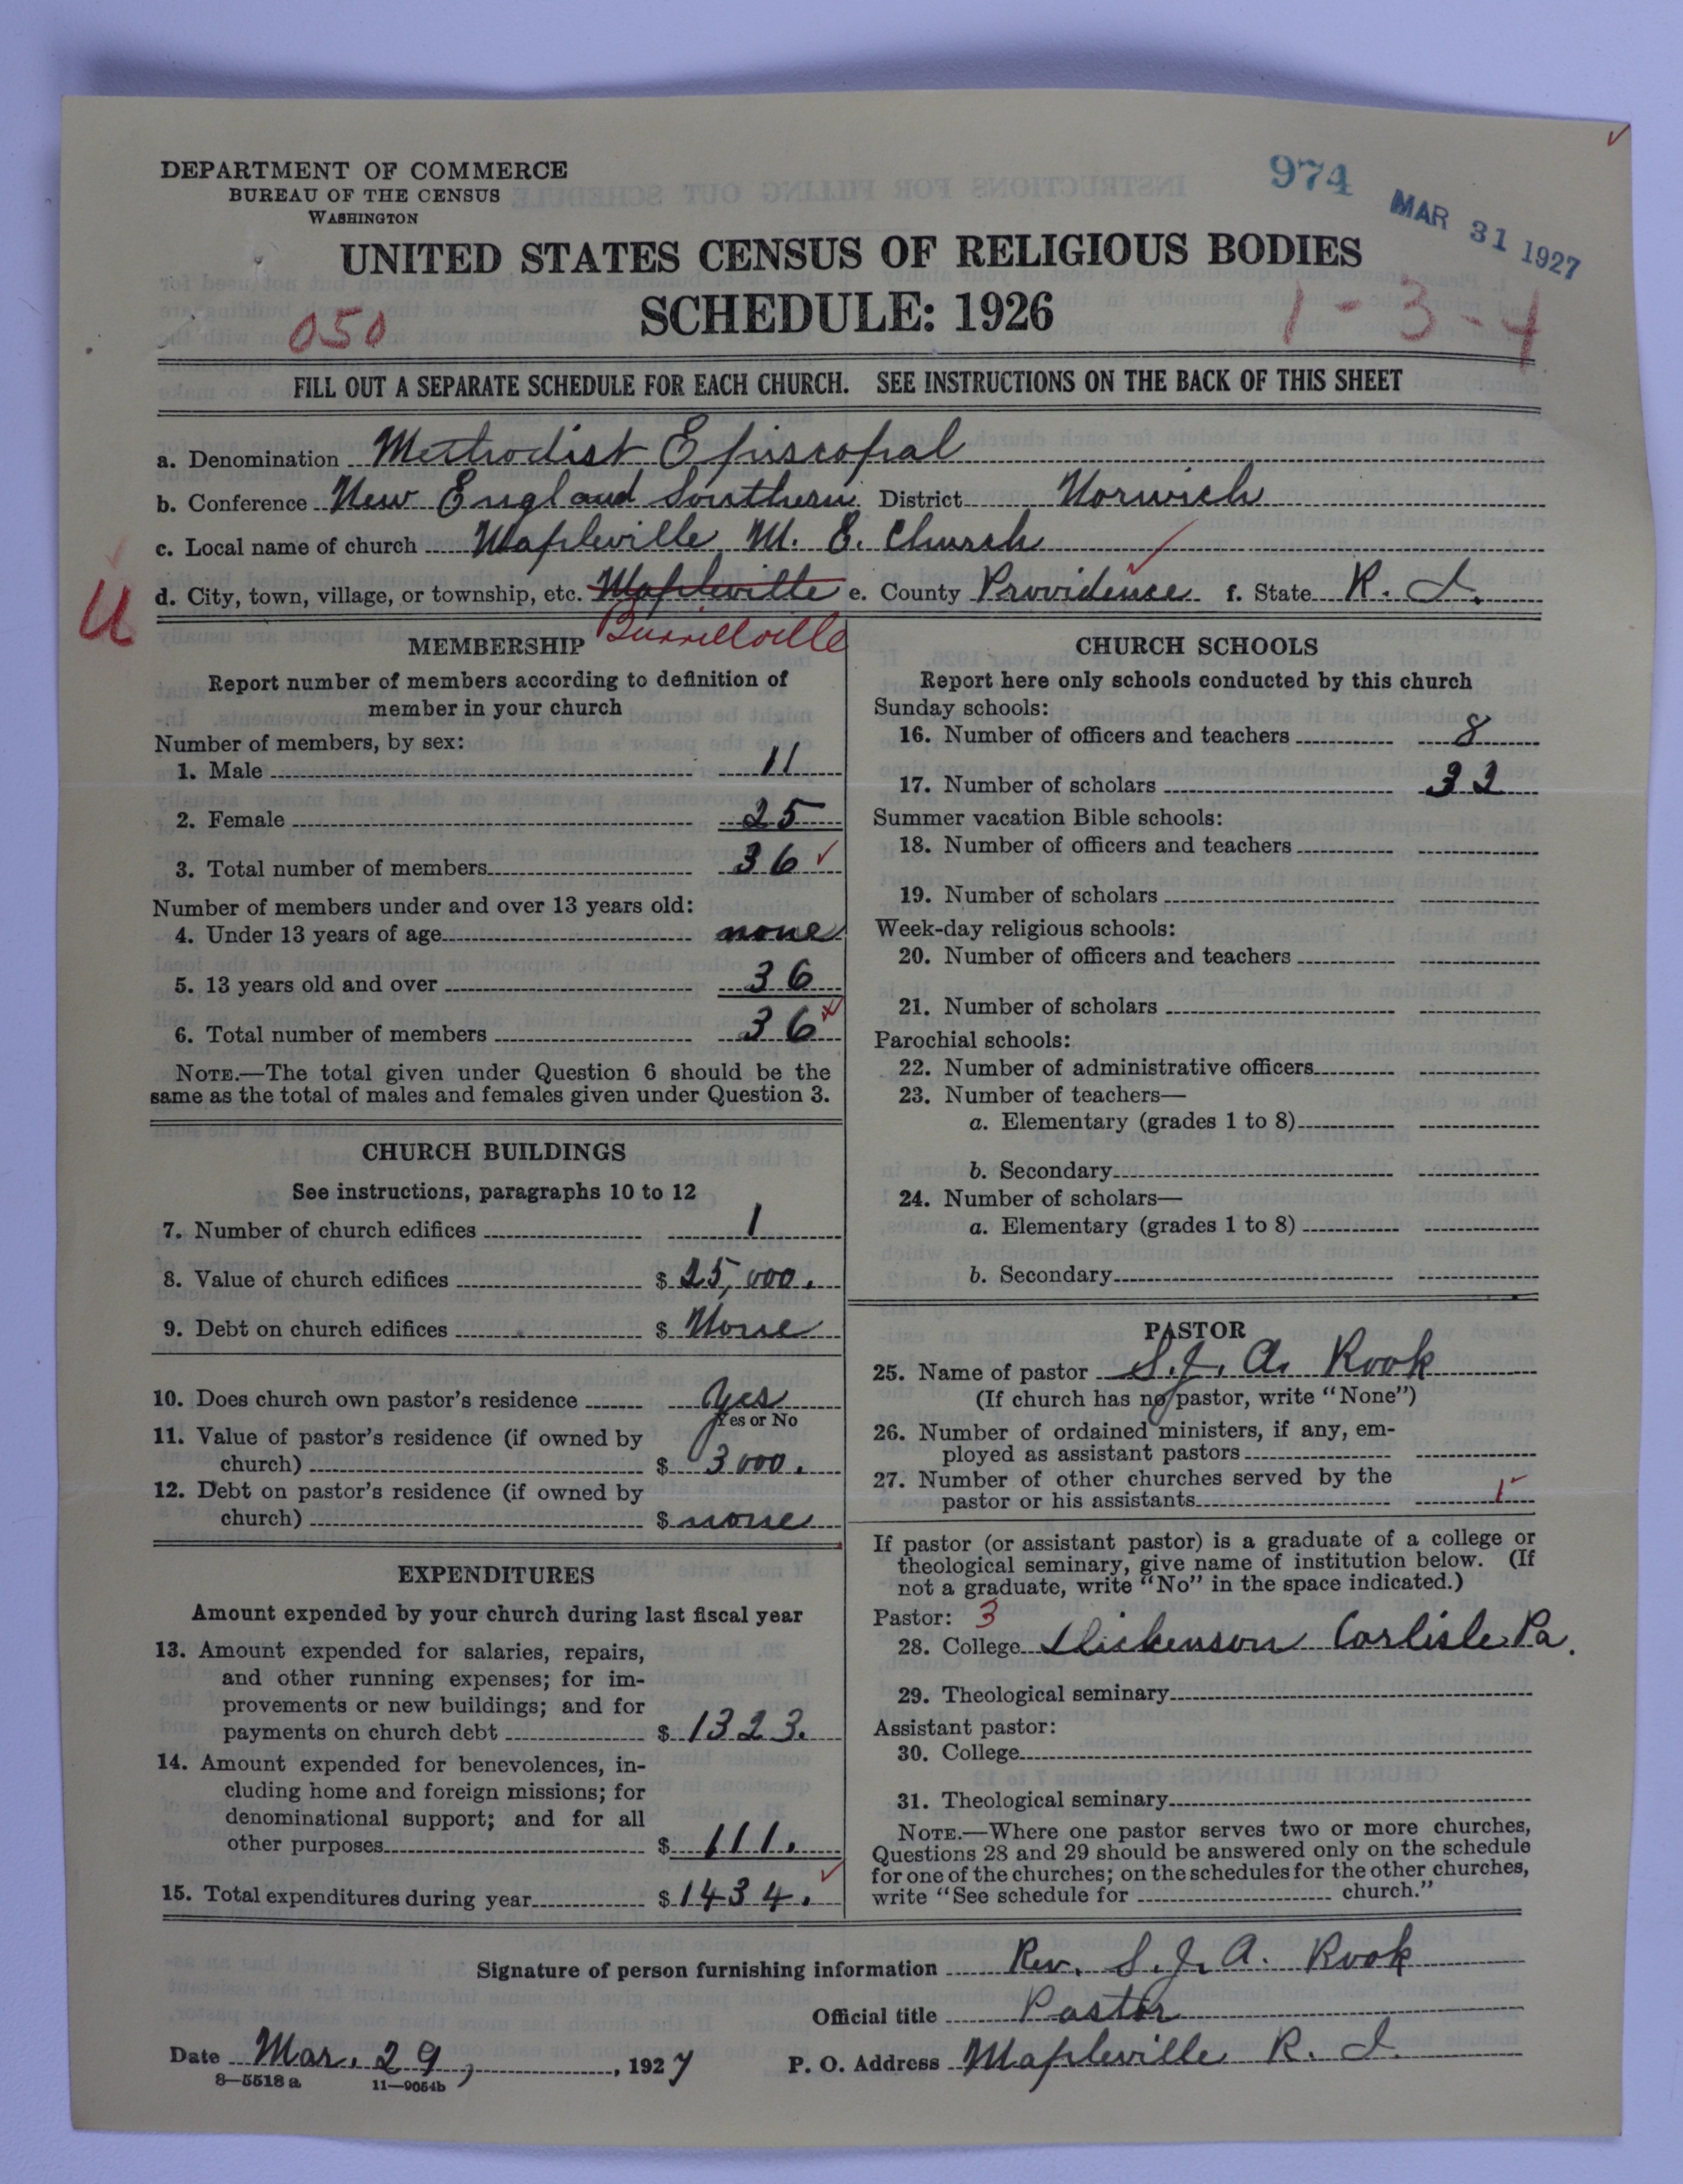 DEPARTMENT OF COMMERCE
BUREAU OF THE CENSUS
WASHINGTON
974
MAR 31 1927
UNITED STATES CENSUS OF RELIGIOUS BODIES
SCHEDULE: 1926
050
1-3-4
FILL OUT A SEPARATE SCHEDULE FOR EACH CHURCH. SEE INSTRUCTIONS ON THE BACK OF THIS SHEET
a. Denomination Methodist Episcopal
b. Conference New England Southern District Norwich
c. Local name of church Mapleville M. E. Church
d. City, town, village, or township, etc. Mapleville e. County Providence f. State R. I.
U
Burrillville
MEMBERSHIP
Report number of members according to definition of
member in your church
Number of members, by sex:
1. Male 11
2. Female 25
3. Total number of members 36
Number of members under and over 13 years old:
4. Under 13 years of age none
5. 13 years old and over 36
6. Total number of members 36
NOTE.—The total given under Question 6 should be the
same as the total of males and females given under Question 3.
CHURCH BUILDINGS
See instructions, paragraphs 10 to 12
7. Number of church edifices 1
8. Value of church edifices $ 25,000.
9. Debt on church edifices $ None
10. Does church own pastor's residence Yes
Yes or No
11. Value of pastor's residence (if owned by
church) $ 3000.
12. Debt on pastor's residence (if owned by
church) $ none
EXPENDITURES
Amount expended by your church during last fiscal year
13. Amount expended for salaries, repairs,
and other running expenses; for im-
provements or new buildings; and for
payments on church debt $ 1323.
14. Amount expended for benevolences, in-
cluding home and foreign missions; for
denominational support; and for all
other purposes $ 111.
15. Total expenditures during year $ 1434.
CHURCH SCHOOLS
Report here only schools conducted by this church
Sunday schools:
16. Number of officers and teachers 8
17. Number of scholars 32
Summer vacation Bible schools:
18. Number of officers and teachers
19. Number of scholars
Week-day religious schools:
20. Number of officers and teachers
21. Number of scholars
Parochial schools:
22. Number of administrative officers
23. Number of teachers—
a. Elementary (grades 1 to 8)
b. Secondary
24. Number of scholars—
a. Elementary (grades 1 to 8)
b. Secondary
PASTOR
25. Name of pastor S. J. A. Rook
(If church has no pastor, write "None")
26. Number of ordained ministers, if any, em-
ployed as assistant pastors
27. Number of other churches served by the
pastor or his assistants 1
If pastor (or assistant pastor) is a graduate of a college or
theological seminary, give name of institution below. (If
not a graduate, write "No" in the space indicated.)
Pastor: 3
28. College Dickenson Carlisle Pa.
29. Theological seminary
Assistant pastor:
30. College
31. Theological seminary
NOTE.—Where one pastor serves two or more churches,
Questions 28 and 29 should be answered only on the schedule
for one of the churches; on the schedules for the other churches,
write "See schedule for church."
Signature of person furnishing information Rev. S. J. A. Rook
Official title Pastor
Date Mar. 29, , 1927 P. O. Address Mapleville R. I.
8—5518a 11—9054b